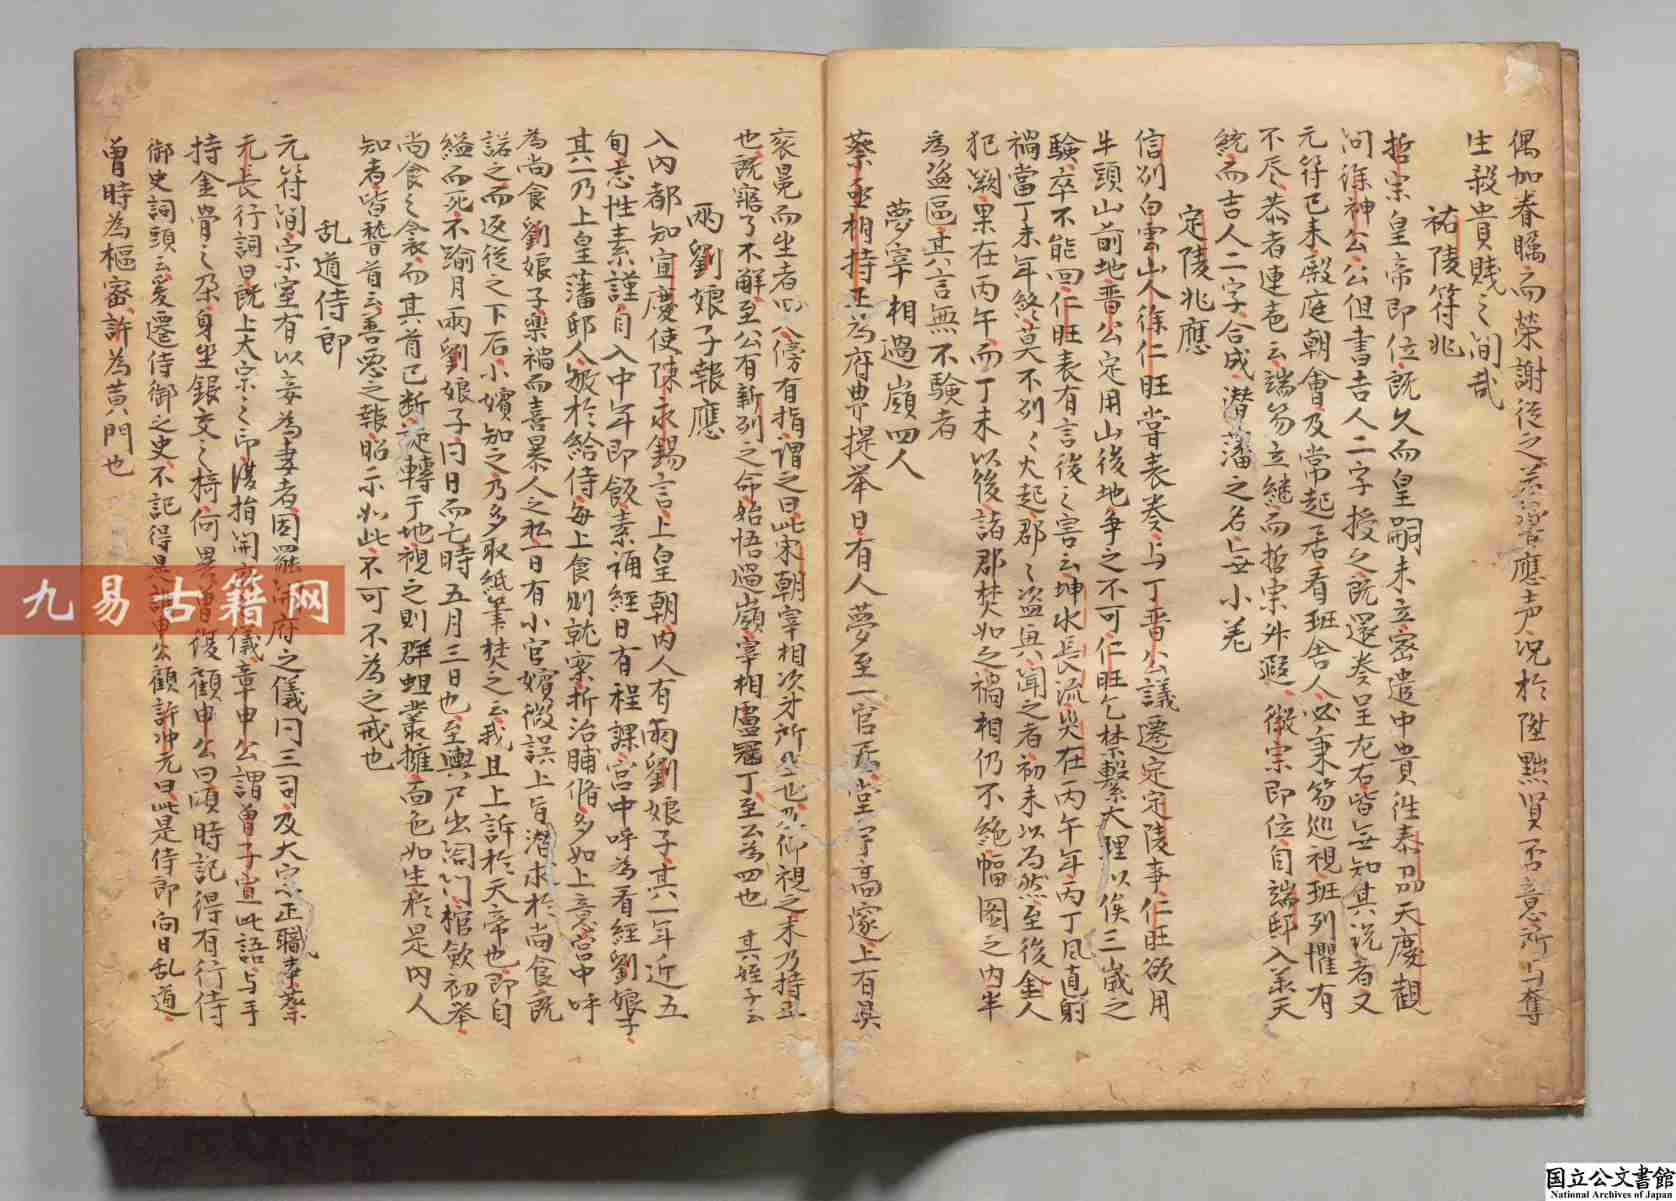 偶加眷矚而榮謝従之若響應声况於陞黜賢否意所与奪
生殺貴賎之间哉
祐陵符兆
哲宗皇帝即位既久而皇嗣未立密遣中貴往泰州天慶觀
问徐神公公但書吉人二字授之既還奏呈左右皆無知其説者又
元符已未殿庭朝會及常起居看班舎人必秉笏巡視班列懼有
不尽恭者連声云端笏立繼而哲宗升遐徽宗即位自端邸入承天
統而吉人二字合成潜藩之名無小差
定陵兆應
信州白雲山人徐仁旺嘗表奏与丁晋公議遷定定陵事仁旺欲用
牛頭山前地晋公定用山後地争之不可仁旺乞禁繋大理以俟三歳之
驗卒不能回仁旺表有言後之害云坤水長流災在丙午年丙丁風直射
禍當丁未年終莫不州々火起郡々盗興聞之者初未以为然至後金人
犯闕果在丙午而丁未以後諸郡焚如之禍相仍不絶幅圎之内半
為盗區其言無不驗者
夢宰相過嶺四人
蔡丞相持正為府曹提举日有人夢至一官府堂宇高邃上有具
衮冕而坐者四人傍有指謂之曰此宋朝宰相次才所坐也及仰視之末乃持正
也既寤了不解至公有新州之命始悟過嶺宰相盧冦丁至公為四也 其姪子云
兩劉娘子報應
入内都知宣慶使陳永錫言上皇朝内人有兩劉娘子其一年近五
旬志性素謹自入中年即飯素誦經日有程課宫中呼為看經劉娘子
其一乃上皇藩邸人敏於給侍毎上食則就案析治脯脩多如上意宫中呼
為尚食劉娘子樂禍而喜暴人之私一日有小宫嬪微誤上旨潜求於尚食既
諾之而返従之下石小嬪知之乃多取紙筆焚之云我且上訴於天帝也即自
縊而死不踰月兩劉娘子同日而亡時五月三日也至輿尸出閤門棺歛初举
尚食之衾而其首已断旋轉于地視之則群蛆叢擁而色如生於是内人
知者皆稽首云善悪之報昭示如此不可不為之戒也
乱道侍郎
元符间宗室有以妾為妻者因罷開府之儀同三司及大宗正職事蔡
元長行詞曰既上大宗之印復捐開府之儀章申公謂曽子宣此語与手
持金骨之朶身坐銀交之椅何異曽復顧申公曰頃時記得有行侍
御史詞頭云爰遷侍御之史不記得是誰申公顧許冲元曰此是侍郎向日乱道
曽時為樞密許為黄門也
九易古籍网
国立公文書館
National Archives of Japan